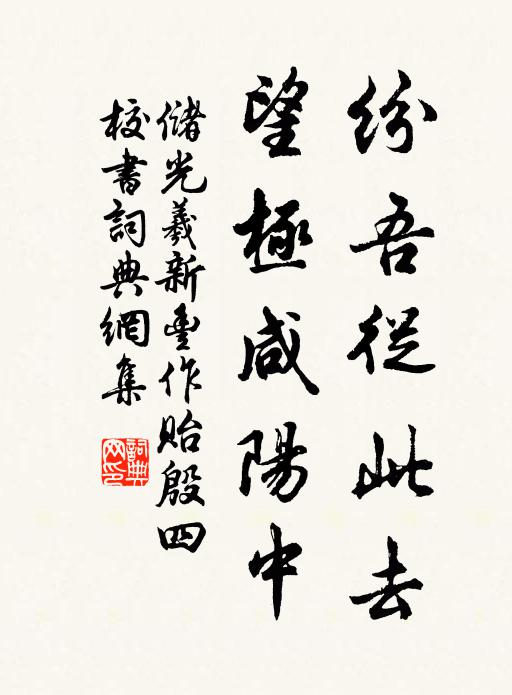 纷吾從此去
望極咸陽中
儲光羲新豐作貽殷四
校書詞典網集
詞典網印